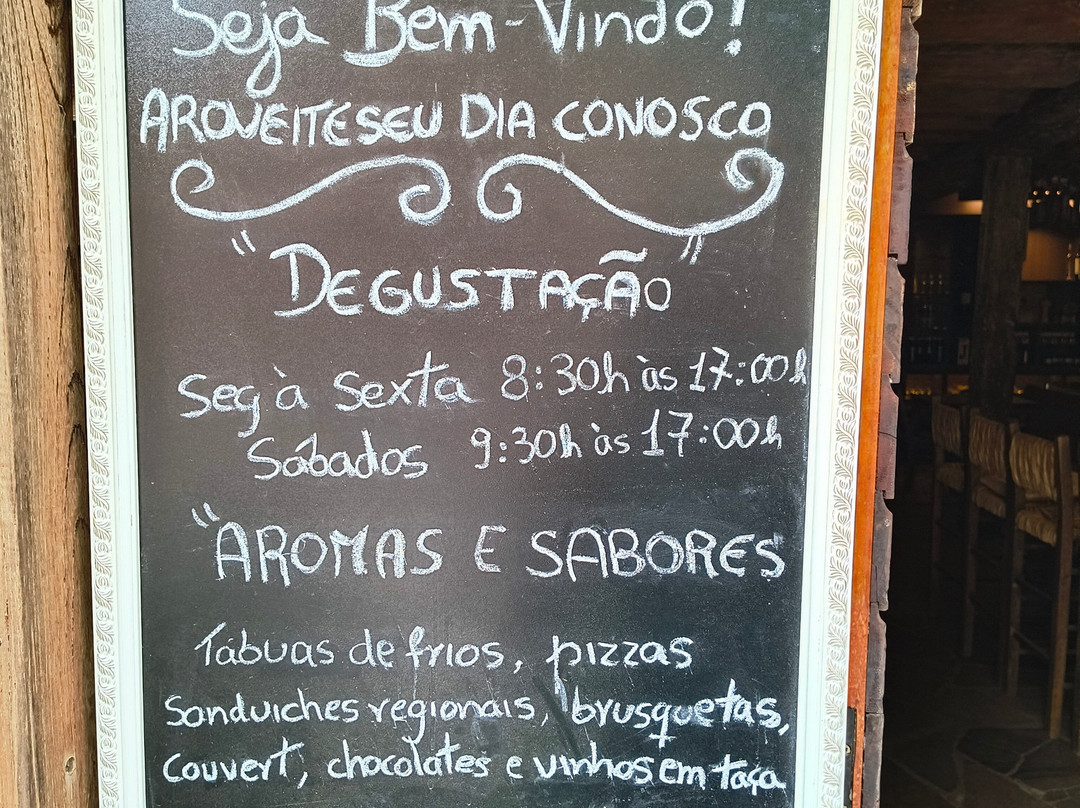 Seja Bem-Vindo!
AROVEITE SEU DIA CONOSCO
"DEGUSTAÇÃO"
Seg à Sexta 8:30h às 17:00h
Sábados 9:30h às 17:00h
"AROMAS E SABORES
Tábuas de frios, pizzas
Sanduiches regionais, brusquetas,
couvert, chocolates e vinhos em taça